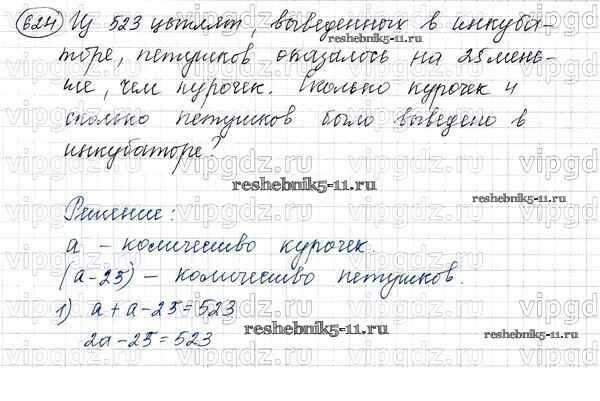 624) Из 523 цыплят, выведенных в инкуба-
торе, петушков оказалось на 25 мень-
ше, чем курочек. Сколько курочек и
сколько петушков было выведено в
инкубаторе?
reshebnik5-11.ru
reshebnik5-11.ru
reshebnik5-11.ru
Решение:
a - количество курочек.
(a-25) - количество петушков.
1) a + a - 25 = 523
reshebnik5-11.ru
reshebnik5-11.ru
2a - 25 = 523
vipgdz.ru